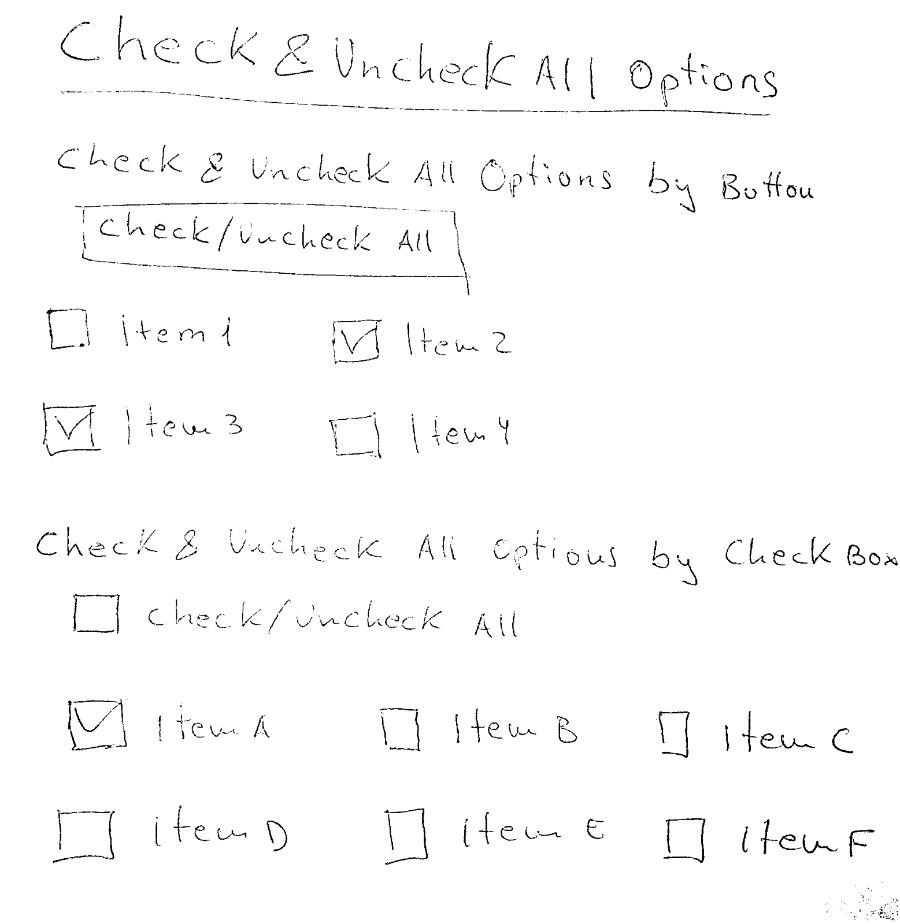 Check & Uncheck All Options
Check & Uncheck All Options by Button
Check/Uncheck All
item 1 Item 2
Item 3 Item 4
Check & Uncheck All Options by Check Box
Check/Uncheck All
Item A Item B Item C
item D Item E Item F